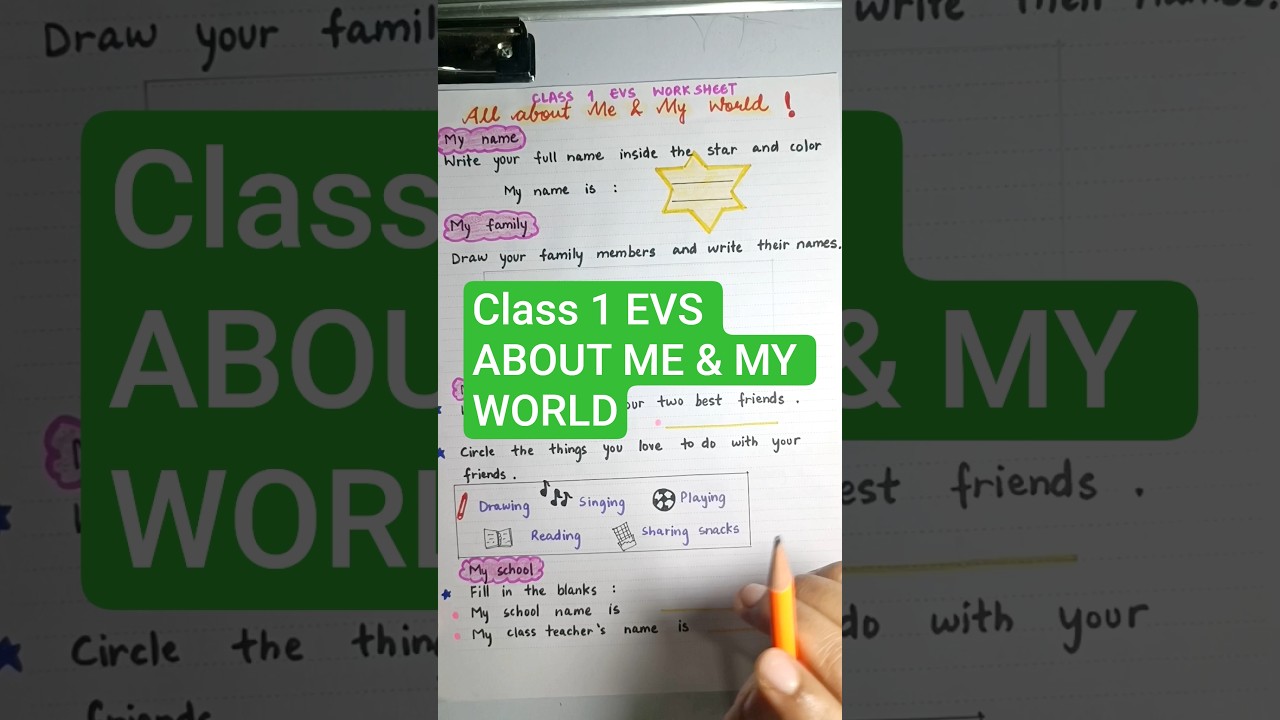 CLASS 1 EVS WORKSHEET
All about Me & My World !
My name
Write your full name inside the star and color
My name is :
My family
Draw your family members and write their names.
Class 1 EVS
ABOUT ME & MY
WORLD
two best friends .
Circle the things you love to do with your
friends .
Drawing Singing Playing
Reading Sharing snacks
My school
Fill in the blanks :
My school name is
My class teacher's name is